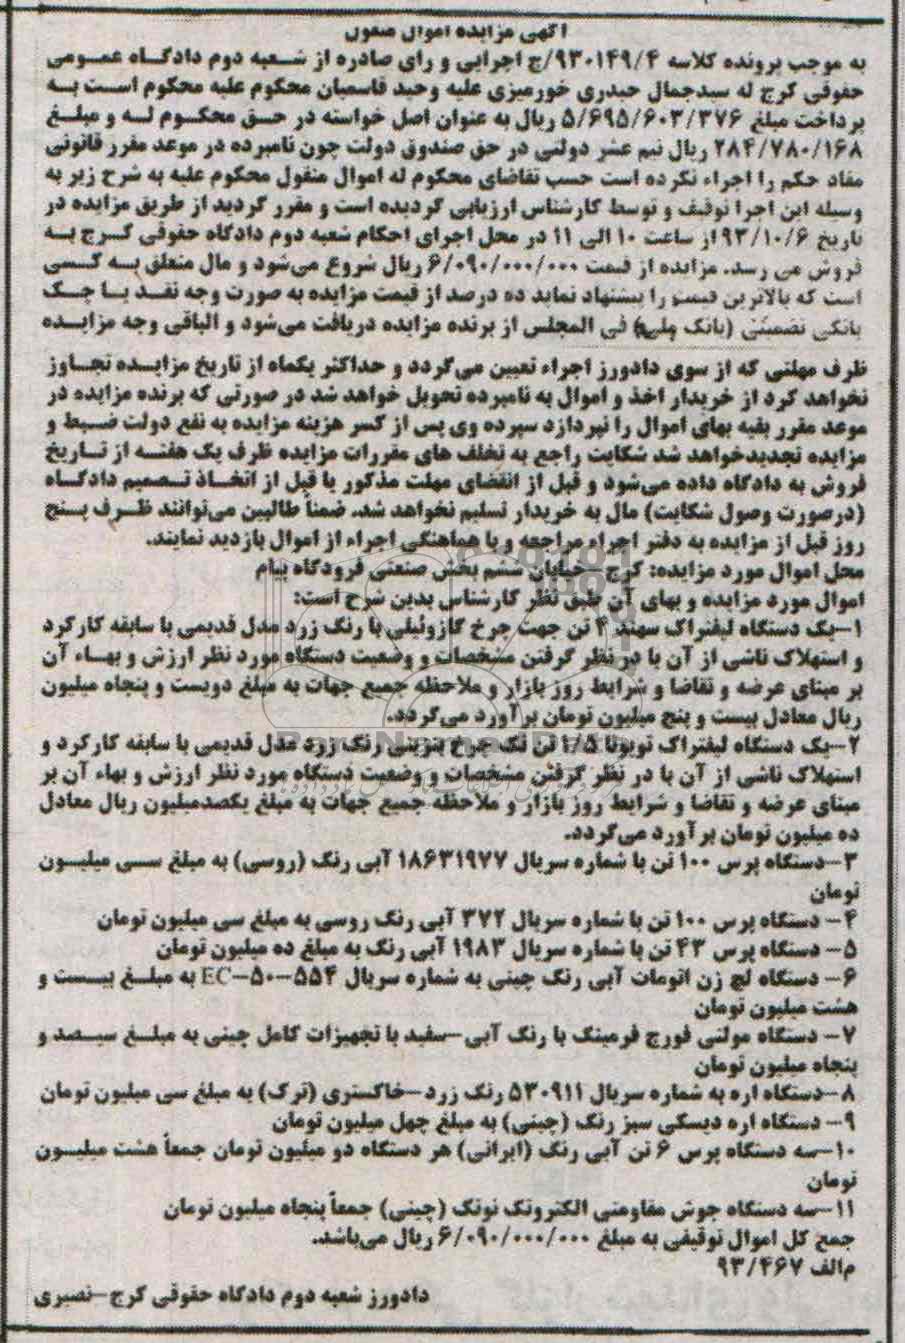 آگهی مزایده اموال منقول
به موجب پرونده کلاسه ۹۳۰۱۴۹/۴/ج اجرایی و رای صادره از شعبه دوم دادگاه عمومی
حقوقی کرج له سیدجمال حیدری خورمیزی علیه وحید قاسمیان محکوم علیه محکوم است به
پرداخت مبلغ ۵/۶۹۵/۶۰۳/۳۷۶ ریال به عنوان اصل خواسته در حق محکوم له و مبلغ
۲۸۴/۷۸۰/۱۶۸ ریال نیم عشر دولتی در حق صندوق دولت چون نامبرده در موعد مقرر قانونی
مفاد حکم را اجراء نکرده است حسب تقاضای محکوم له اموال منقول محکوم علیه به شرح زیر به
وسیله این اجرا توقیف و توسط کارشناس ارزیابی گردیده است و مقرر گردید از طریق مزایده در
تاریخ ۹۳/۱۰/۶ از ساعت ۱۰ الی ۱۱ در محل اجرای احکام شعبه دوم دادگاه حقوقی کرج به
فروش می رسد. مزایده از قیمت ۶/۰۹۰/۰۰۰/۰۰۰ ریال شروع می‌شود و مال متعلق به کسی
است که بالاترین قیمت را پیشنهاد نماید ده درصد از قیمت مزایده به صورت وجه نقد یا چک
بانکی تضمینی (بانک ملی) فی المجلس از برنده مزایده دریافت می‌شود و الباقی وجه مزایده
ظرف مهلتی که از سوی دادورز اجراء تعیین می‌گردد و حداکثر یکماه از تاریخ مزایده تجاوز
نخواهد کرد از خریدار اخذ و اموال به نامبرده تحویل خواهد شد در صورتی که برنده مزایده در
موعد مقرر بقیه بهای اموال را نپردازد سپرده وی پس از کسر هزینه مزایده به نفع دولت ضبط و
مزایده تجدیدخواهد شد شکایت راجع به تخلف های مقررات مزایده ظرف یک هفته از تاریخ
فروش به دادگاه داده می‌شود و قبل از انقضای مهلت مذکور یا قبل از اتخاذ تصمیم دادگاه
(درصورت وصول شکایت) مال به خریدار تسلیم نخواهد شد. ضمناً طالبین می‌توانند ظرف پنج
روز قبل از مزایده به دفتر اجراء مراجعه و با هماهنگی اجراء از اموال بازدید نمایند.
محل اموال مورد مزایده: کرج - خیابان ششم بخش صنعتی فرودگاه پیام
اموال مورد مزایده و بهای آن طبق نظر کارشناس بدین شرح است:
۱-یک دستگاه لیفتراک سهند ۴ تن جهت چرخ گازوئیلی با رنگ زرد مدل قدیمی با سابقه کارکرد
و استهلاک ناشی از آن با در نظر گرفتن مشخصات و وضعیت دستگاه مورد نظر ارزش و بهاء آن
بر مبنای عرضه و تقاضا و شرایط روز بازار و ملاحظه جمیع جهات به مبلغ دویست و پنجاه میلیون
ریال معادل بیست و پنج میلیون تومان برآورد می‌گردد.
۲-یک دستگاه لیفتراک تویوتا ۱/۵ تن تک چرخ بنزینی رنگ زرد مدل قدیمی با سابقه کارکرد و
استهلاک ناشی از آن با در نظر گرفتن مشخصات و وضعیت دستگاه مورد نظر ارزش و بهاء آن بر
مبنای عرضه و تقاضا و شرایط روز بازار و ملاحظه جمیع جهات به مبلغ یکصدمیلیون ریال معادل
ده میلیون تومان برآورد می‌گردد.
۳-دستگاه پرس ۱۰۰ تن با شماره سریال ۱۸۶۳۱۹۷۷ آبی رنگ (روسی) به مبلغ سی میلیون
تومان
۴- دستگاه پرس ۱۰۰ تن با شماره سریال ۳۷۲ آبی رنگ روسی به مبلغ سی میلیون تومان
۵- دستگاه پرس ۴۳ تن با شماره سریال ۱۹۸۳ آبی رنگ به مبلغ ده میلیون تومان
۶- دستگاه لچ زن اتومات آبی رنگ چینی به شماره سریال EC-۵۰-۵۵۴ به مبلغ بیست و
هشت میلیون تومان
۷- دستگاه مولتی فورچ فرمینگ با رنگ آبی-سفید با تجهیزات کامل چینی به مبلغ سیصد و
پنجاه میلیون تومان
۸-دستگاه اره به شماره سریال ۵۳۰۹۱۱ رنگ زرد-خاکستری (ترک) به مبلغ سی میلیون تومان
۹- دستگاه اره دیسکی سبز رنگ (چینی) به مبلغ چهل میلیون تومان
۱۰-سه دستگاه پرس ۶ تن آبی رنگ (ایرانی) هر دستگاه دو میلیون تومان جمعاً هشت میلیون
تومان
۱۱-سه دستگاه جوش مقاومتی الکترونک نوتک (چینی) جمعاً پنجاه میلیون تومان
جمع کل اموال توقیفی به مبلغ ۶/۰۹۰/۰۰۰/۰۰۰ ریال می‌باشد.
م‌الف ۹۳/۴۶۷
دادورز شعبه دوم دادگاه حقوقی کرج-نصیری